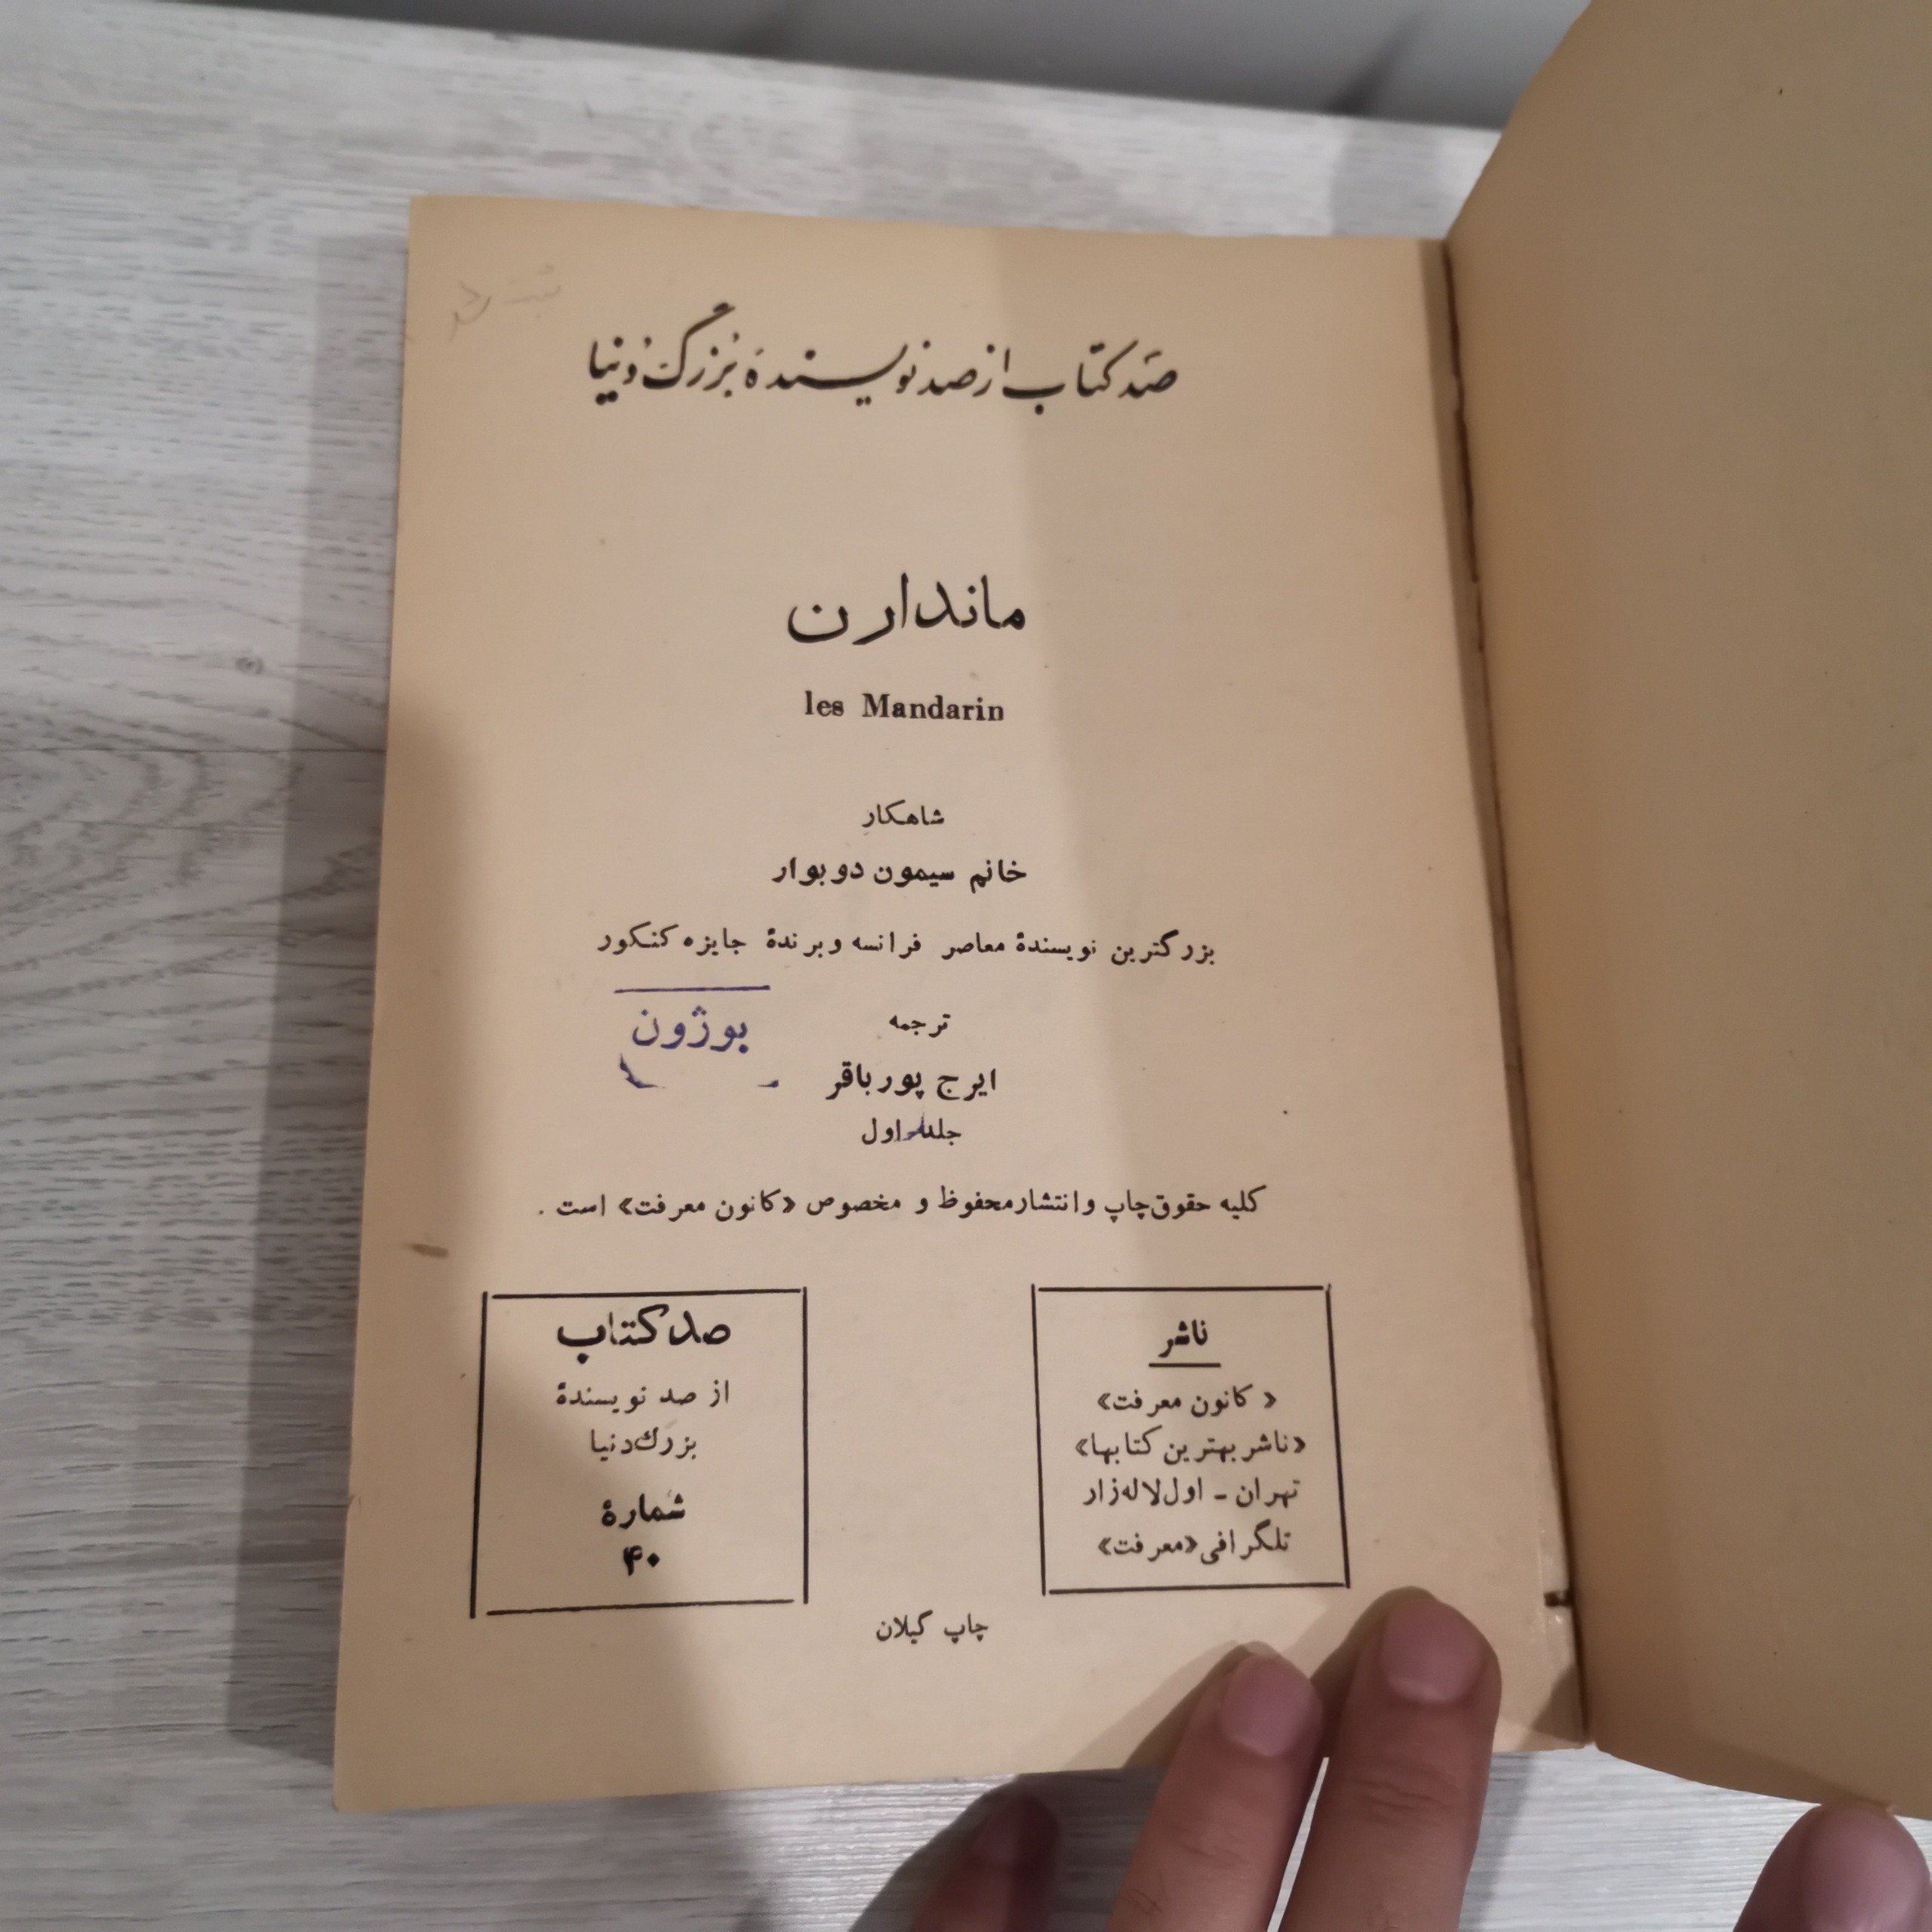 صد کتاب از صد نویسنده بزرگ دنیا
ماندارن
les Mandarin
شاهکار
خانم سیمون دوبوار
بزرگترین نویسندهٔ معاصر فرانسه و برندهٔ جایزه کنکور
ترجمه
بوژون
ایرج پور باقر
جلد اول
کلیه حقوق چاپ و انتشار محفوظ و مخصوص «کانون معرفت» است .
ناشر
«کانون معرفت»
«ناشر بهترین کتابها»
تهران - اول لاله‌زار
تلگرافی «معرفت»
صد کتاب
از صد نویسندهٔ
بزرك دنیا
شمارهٔ
۴۰
چاپ گیلان